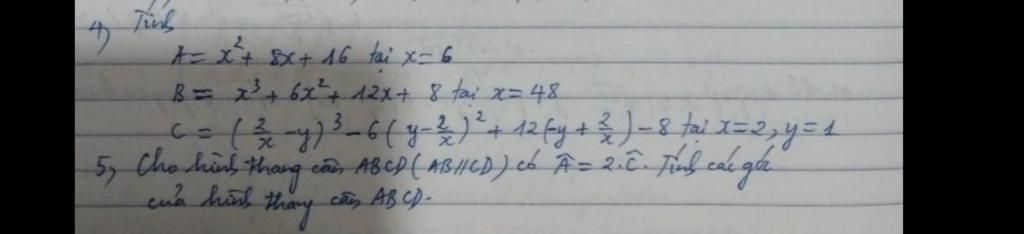 4, Tính
A = x² + 8x + 16 tại x = 6
B = x³ + 6x² + 12x + 8 tại x = 48
C = (2/x - y)³ - 6(y - 2/x)² + 12(-y + 2/x) - 8 tại x = 2, y = 1
5, Cho hình thang cân ABCD (AB//CD) có Â = 2.Ĉ. Tính các góc
của hình thang cân ABCD.